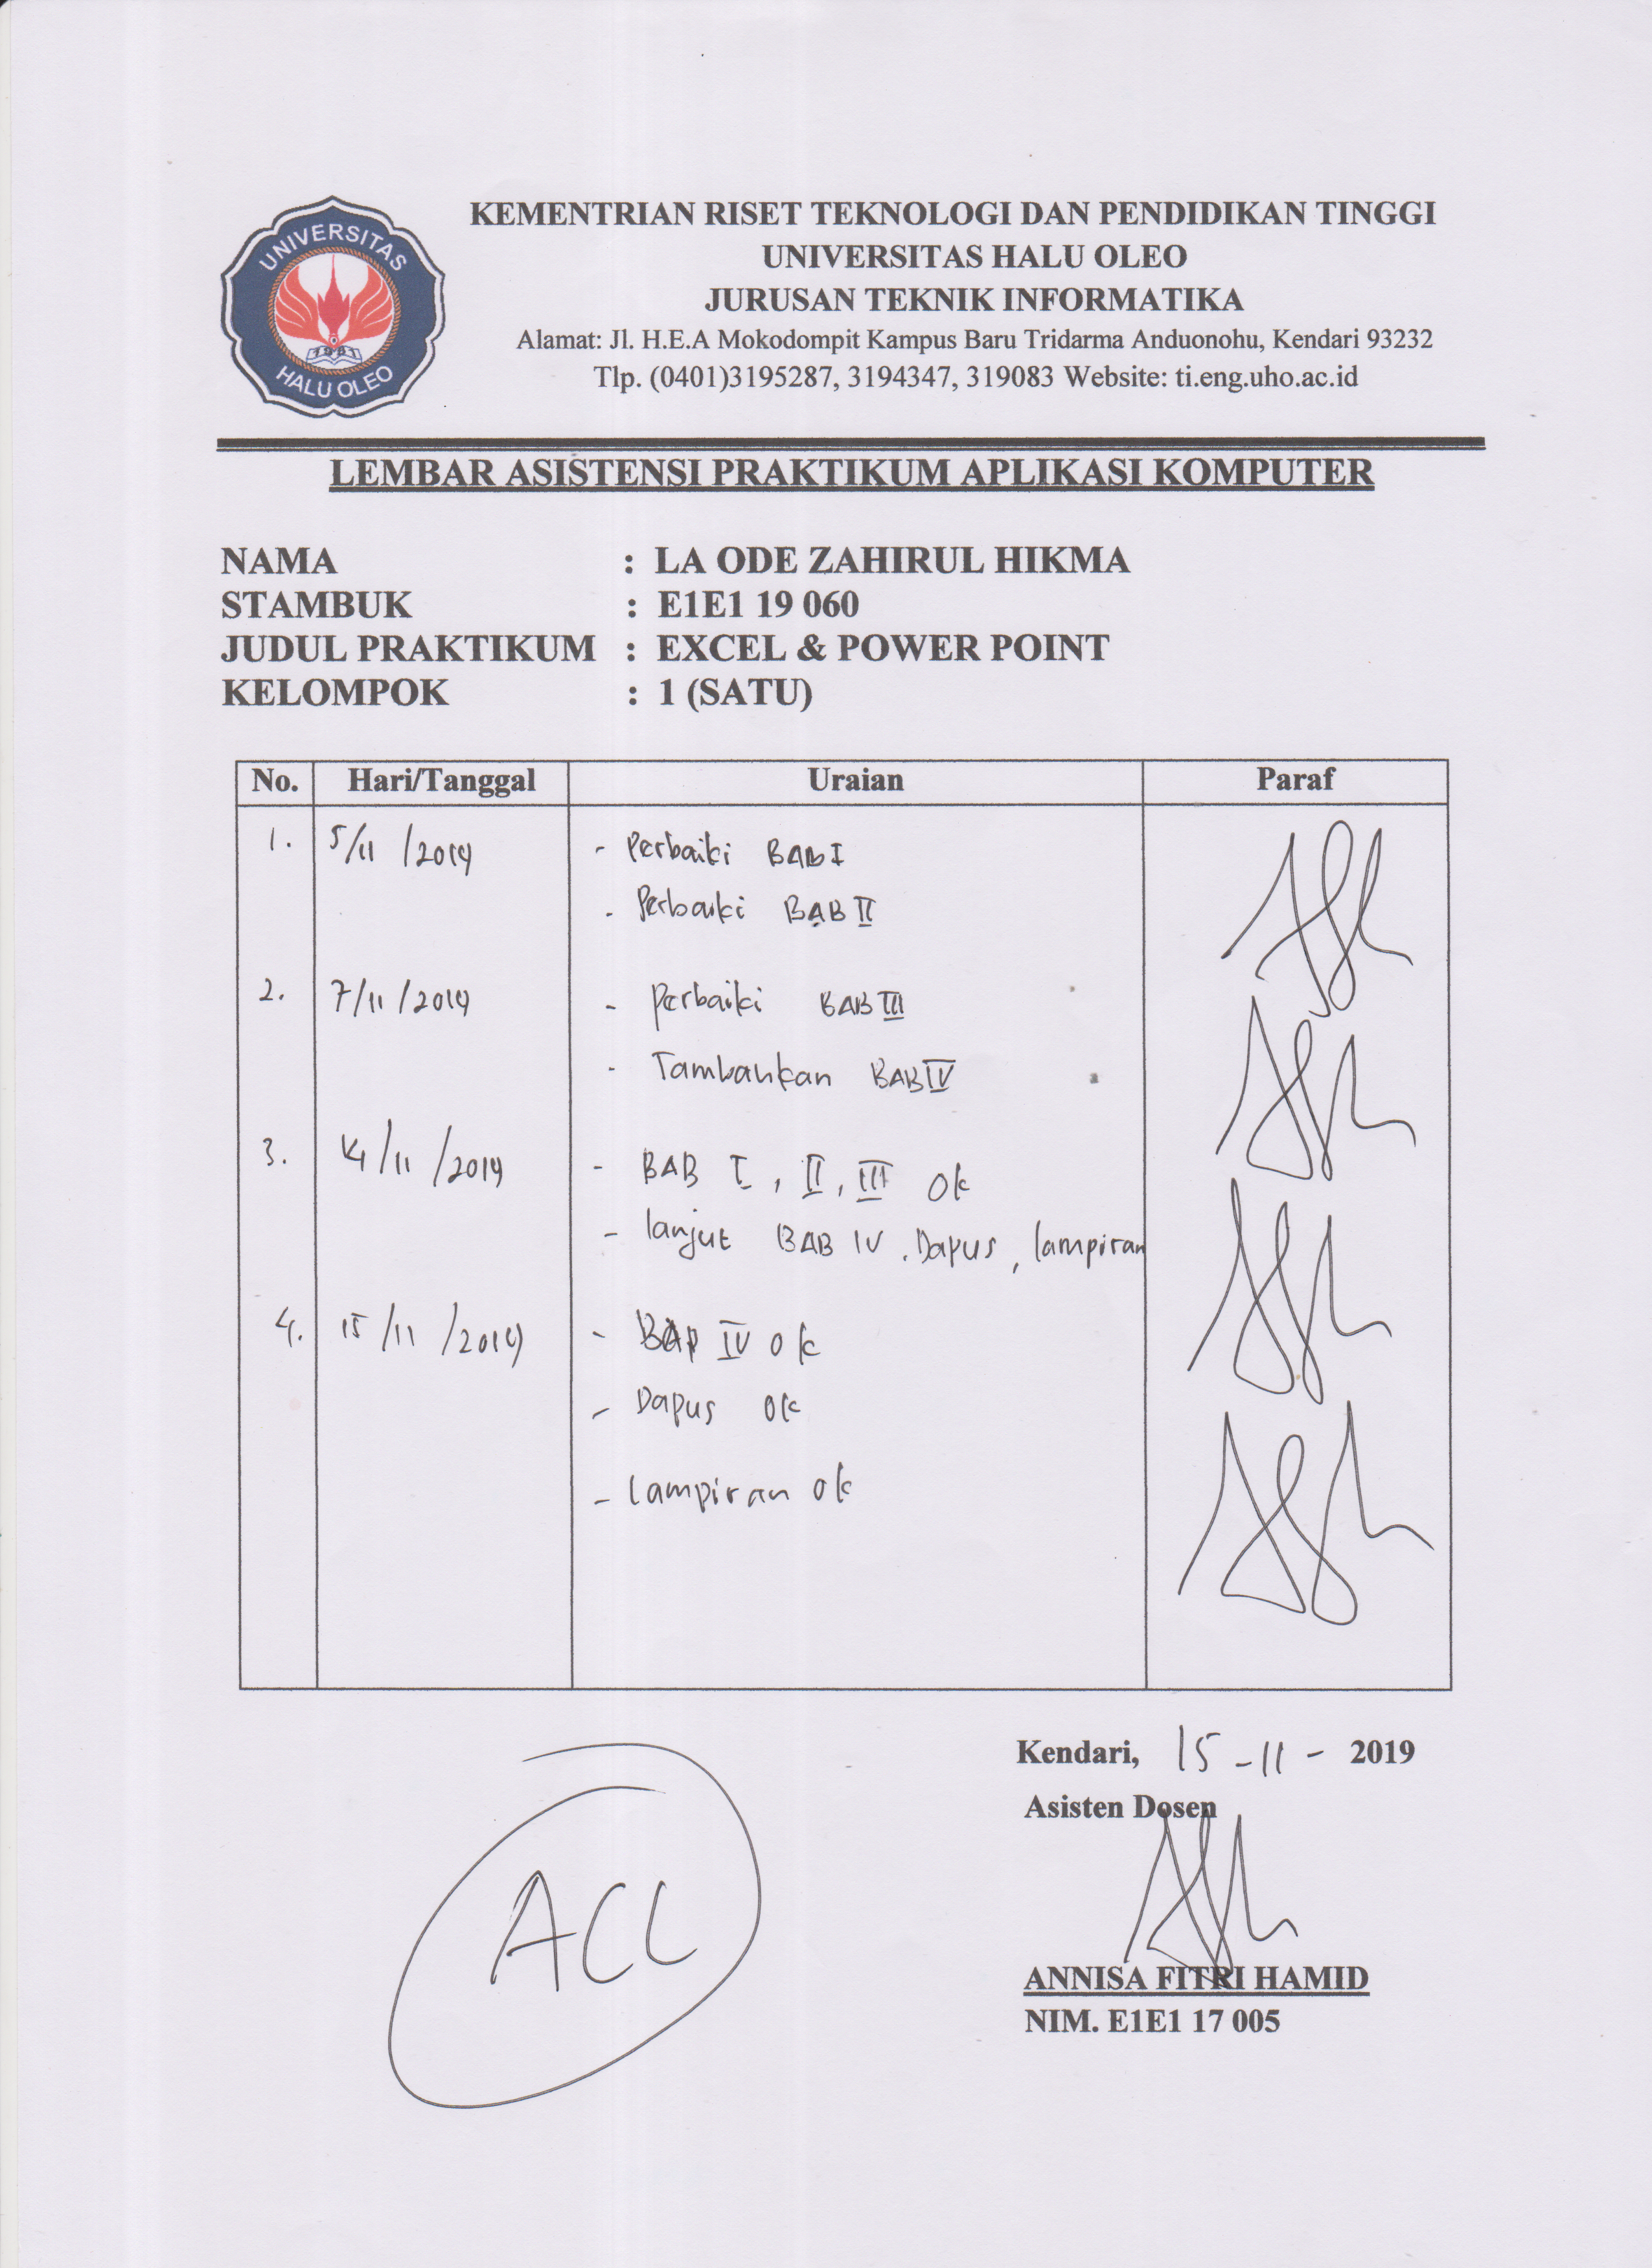 UNIVERSITAS
HALU OLEO
1981
KEMENTRIAN RISET TEKNOLOGI DAN PENDIDIKAN TINGGI
UNIVERSITAS HALU OLEO
JURUSAN TEKNIK INFORMATIKA
Alamat: Jl. H.E.A Mokodompit Kampus Baru Tridarma Anduonohu, Kendari 93232
Tlp. (0401)3195287, 3194347, 319083 Website: ti.eng.uho.ac.id
LEMBAR ASISTENSI PRAKTIKUM APLIKASI KOMPUTER
NAMA : LA ODE ZAHIRUL HIKMA
STAMBUK : E1E1 19 060
JUDUL PRAKTIKUM : EXCEL & POWER POINT
KELOMPOK : 1 (SATU)
No. Hari/Tanggal Uraian Paraf
1. 5/11 /2019 - Perbaiki BAB I
- Perbaiki BAB II
2. 7/11 /2019 - Perbaiki BAB III
- Tambahkan BAB IV
3. 14/11 /2019 - BAB I, II, III ok
- lanjut BAB IV. Dapus, lampiran
4. 15/11 /2019 - BAB IV ok
- Dapus ok
- lampiran ok
Kendari, 15 - 11 - 2019
Asisten Dosen
ACC
ANNISA FITRI HAMID
NIM. E1E1 17 005